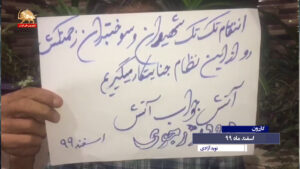 انتقام تک تک شهیدان و سوختبران زحمتکش
رو از این نظام جنایتکار میگیریم
آتش جواب آتش
رجوی
اسفند ۹۹
کازرون
اسفند ماه ۹۹
نوید آزادی